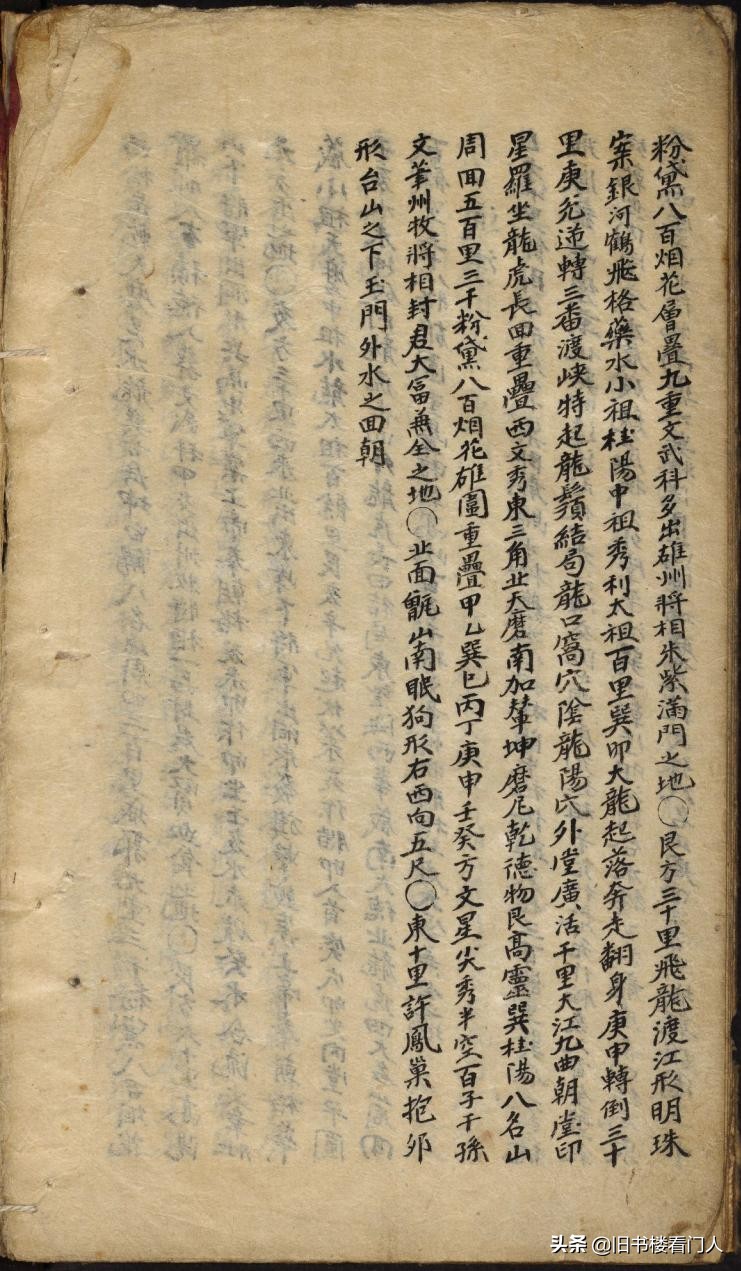 粉黛八百烟花層疊九重文武科多出雄州將相朱紫滿門之地〇艮方三十里飛龍渡江形明珠
案銀河鶴飛格藥水小祖桂陽中祖秀利太祖百里巽卯大龍起落奔走翻身庚申轉倒三十
里庚兌逆轉三番渡峽特起龍鬚結局龍口窩穴陰龍陽穴外堂廣活千里大江九曲朝堂印
星羅坐龍虎長回重疊西文秀東三角北天磨南加輦坤磨尼乾德物艮高靈巽桂陽八名山
周回五百里三千粉黛八百烟花雄圖重疊甲乙巽巳丙丁庚申壬癸方文星尖秀半空百子千孫
文筆州牧將相封君大富兼全之地〇北面甑山南眠狗形右西向五尺〇東十里許鳳巢抱卵
形台山之下玉門外水之回朝
头条 @旧书楼看门人